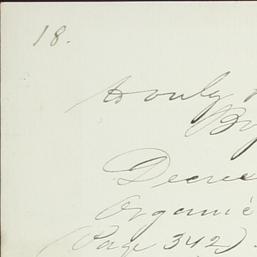 18.
to only
By
Decree
Organic
(Page 342).